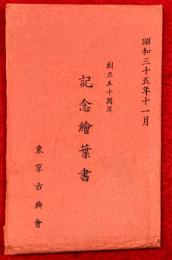 昭和三十五年十一月
創立五十周年
記念繪葉書
東京古典會